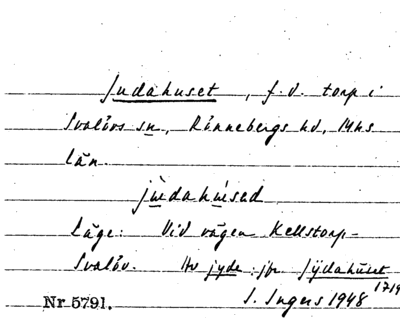 Judahuset, f.d. torp i
Svalövs sn, Rönnebergs hd, Mhs
län.
jùdahu̍sad
Läge: Vid vägen Kellstorp-
Svalöv. Hv jyde: jfr Jÿdahuset
1719
Nr 5791. I. Ingers 1948